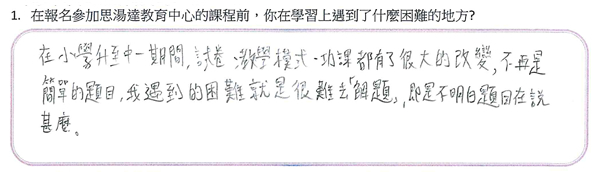 1. 在報名參加思湯達教育中心的課程前，你在學習上遇到了什麼困難的地方?
在小學升至中一期間，試卷、教學模式、功課都有了很大的改變，不再是
簡單的題目，我遇到的困難就是很難去「解題」，即是不明白題目在說
甚麼。